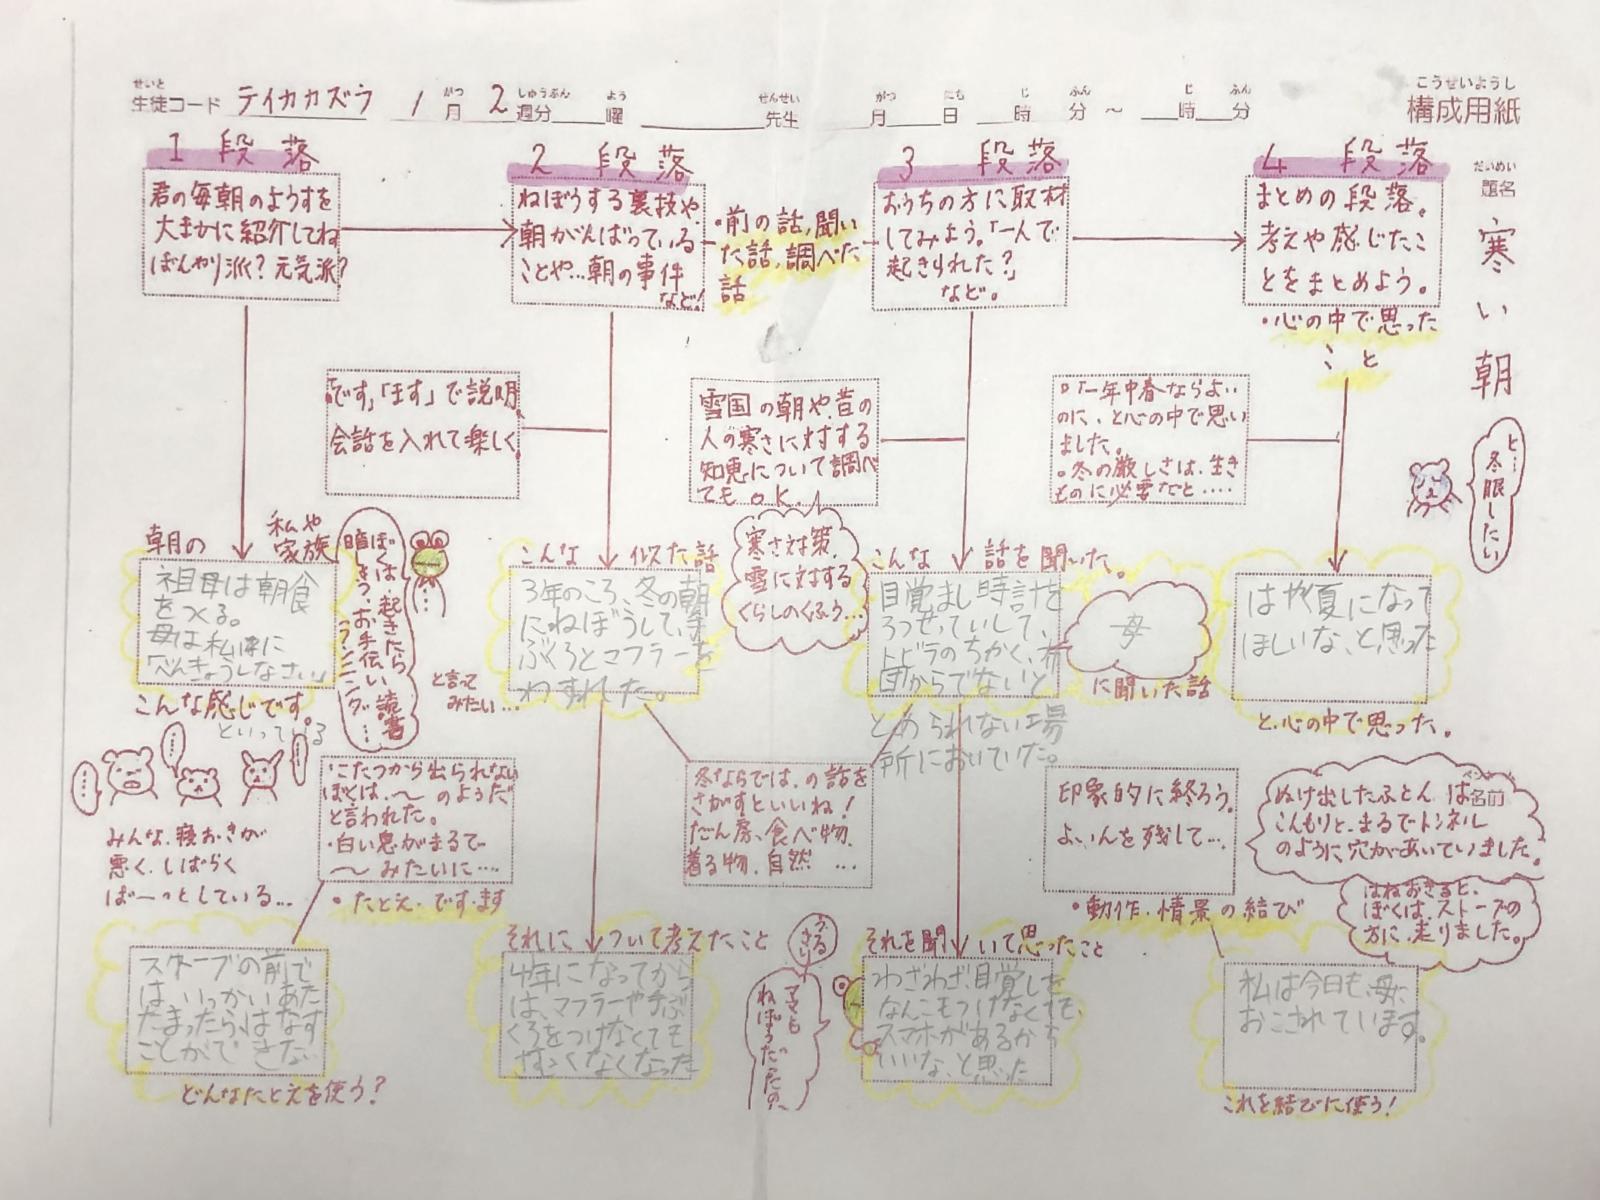 せいと
生徒コード テイカカズラ
がつ しゅうぶん よう
1月 2週分 曜
せんせい
先生
がつ にち じ ふん じ ふん
月 日 時 分 〜 時 分
こうせいようし
構成用紙
だいめい
題名
寒い朝
1 段落
君の毎朝のようすを
大まかに紹介してね
ぼんやり派？元気派？
2 段落
ねぼうする裏技や、
朝がんばっている
ことや…朝の事件
など！
・前の話,聞い
た話,調べた
話
3 段落
おうちの方に取材
してみよう。「一人で
起きられた？」
など。
4 段落
まとめの段落。
考えや感じたこ
とをまとめよう。
・心の中で思った
こと
「です」「ます」で説明
会話を入れて楽しく
雪国の朝や、昔の
人の寒さに対する
知恵について調べ
てもO.K.
「一年中春ならよい
のに、と心の中で思い
ました。
。冬の厳しさは、生き
ものに必要だと‥‥
と…
冬眠したい
朝の
私や
家族
祖母は朝食
をつくる。
母は私達に
「べんきょうしなさい」
こんな感じです。
といっている
ぼくは、起きたら
お手伝い、読書
ランニング…
と言って
みたい…
こんな 似た話
3年のころ、冬の朝
にねぼうして、手
ぶくろとマフラーを
わすれた。
寒さ対策、
雪に対する
くらしのくふう…
こんな 話を聞いた。
目覚まし時計を
ろつせっていして、
トビラのちかく、布
団からでないと
とめられない場
所においていた。
母
に聞いた話
はやく夏になって
ほしいな、と思った
と、心の中で思った。
みんな、寝おきが
悪く、しばらく
ぼーっとしている…
・こたつから出られない
ぼくは、〜のようだ
と言われた。
・白い息がまるで
〜みたいに‥‥
・たとえ・です・ます
冬ならでは、の話を
さがすといいね！
だん房、食べ物、
着る物、自然…
印象的に終ろう。
よいんを残して…
・動作・情景の結び
ぬけ出したふとんは名前
こんもりと、まるでトンネル
のように穴があいていました。
はねおきると、
ぼくは、ストーブの
方に、走りました。
ストーブの前で
は、いっかいあた
たまったら、はなす
ことができない
どんなたとえを使う？
それに ついて考えたこと
4年になってから
は、マフラーや手ぶ
くろをつけなくても
さむくなくなった
うる
さい
ママも
ねぼうだったの、
それを聞いて思ったこと
わざわざ、目覚しを
なんこもつけなくても、
スマホがあるから
いいな、と思った
私は今日も、母に
おこされています。
これを結びに使う！